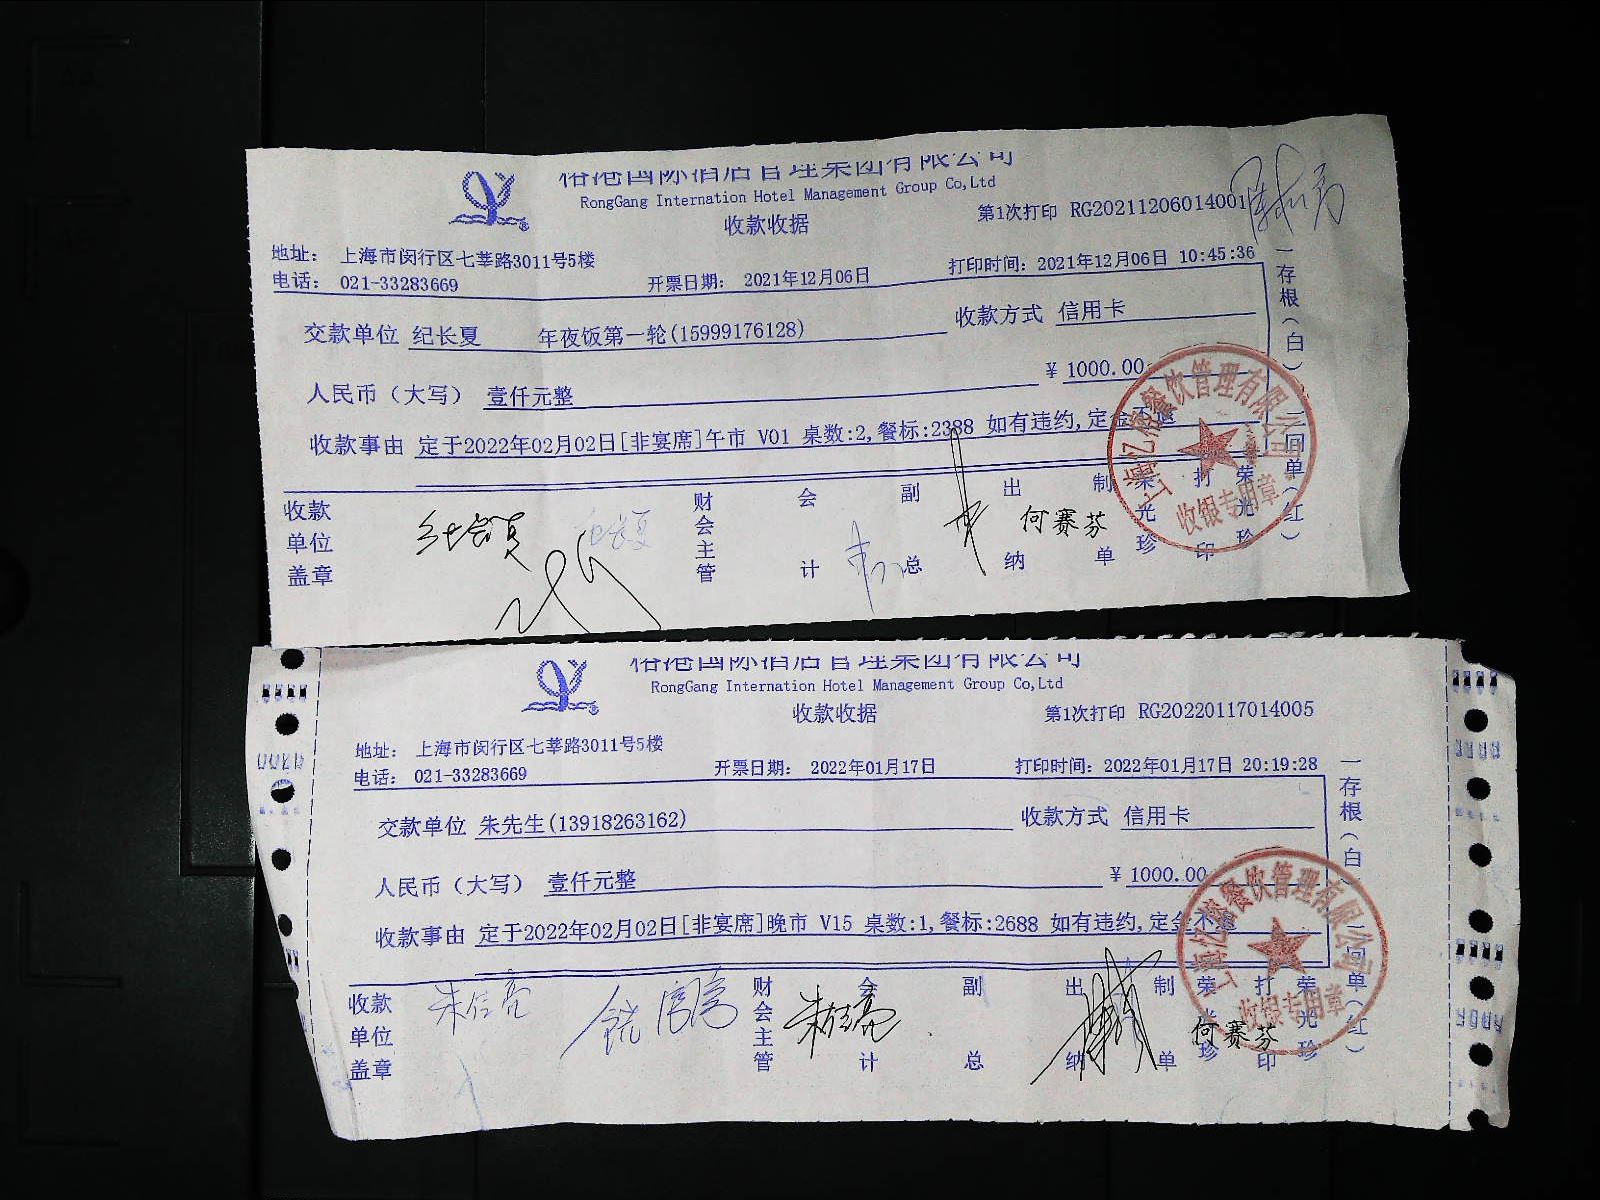 裕港国际酒店管理集团有限公司
RongGang Internation Hotel Management Group Co,Ltd
收款收据
第1次打印 RG20211206014001
地址： 上海市闵行区七莘路3011号5楼
电话： 021-33283669
开票日期： 2021年12月06日
打印时间：2021年12月06日 10:45:36
交款单位 纪长夏 年夜饭第一轮(15999176128)
收款方式 信用卡
人民币（大写） 壹仟元整
￥ 1000.00
收款事由 定于2022年02月02日[非宴席]午市 V01 桌数:2,餐标:2388 如有违约,定金不退
收款单位盖章
纪长夏
财会主管
会计
副总
出纳
何赛芬
制单
荣光珍
打印
荣光珍
一存根（白）
二回单（红）
餐饮管理有限公司
收银专用章
裕港国际酒店管理集团有限公司
RongGang Internation Hotel Management Group Co,Ltd
收款收据
第1次打印 RG20220117014005
地址： 上海市闵行区七莘路3011号5楼
电话： 021-33283669
开票日期： 2022年01月17日
打印时间：2022年01月17日 20:19:28
交款单位 朱先生(13918263162)
收款方式 信用卡
人民币（大写） 壹仟元整
￥ 1000.00
收款事由 定于2022年02月02日[非宴席]晚市 V15 桌数:1,餐标:2688 如有违约,定金不退
收款单位盖章
财会主管
会计
副总
出纳
制单
荣光珍
何赛芬
打印
荣光珍
一存根（白）
二回单（红）
餐饮管理有限公司
收银专用章